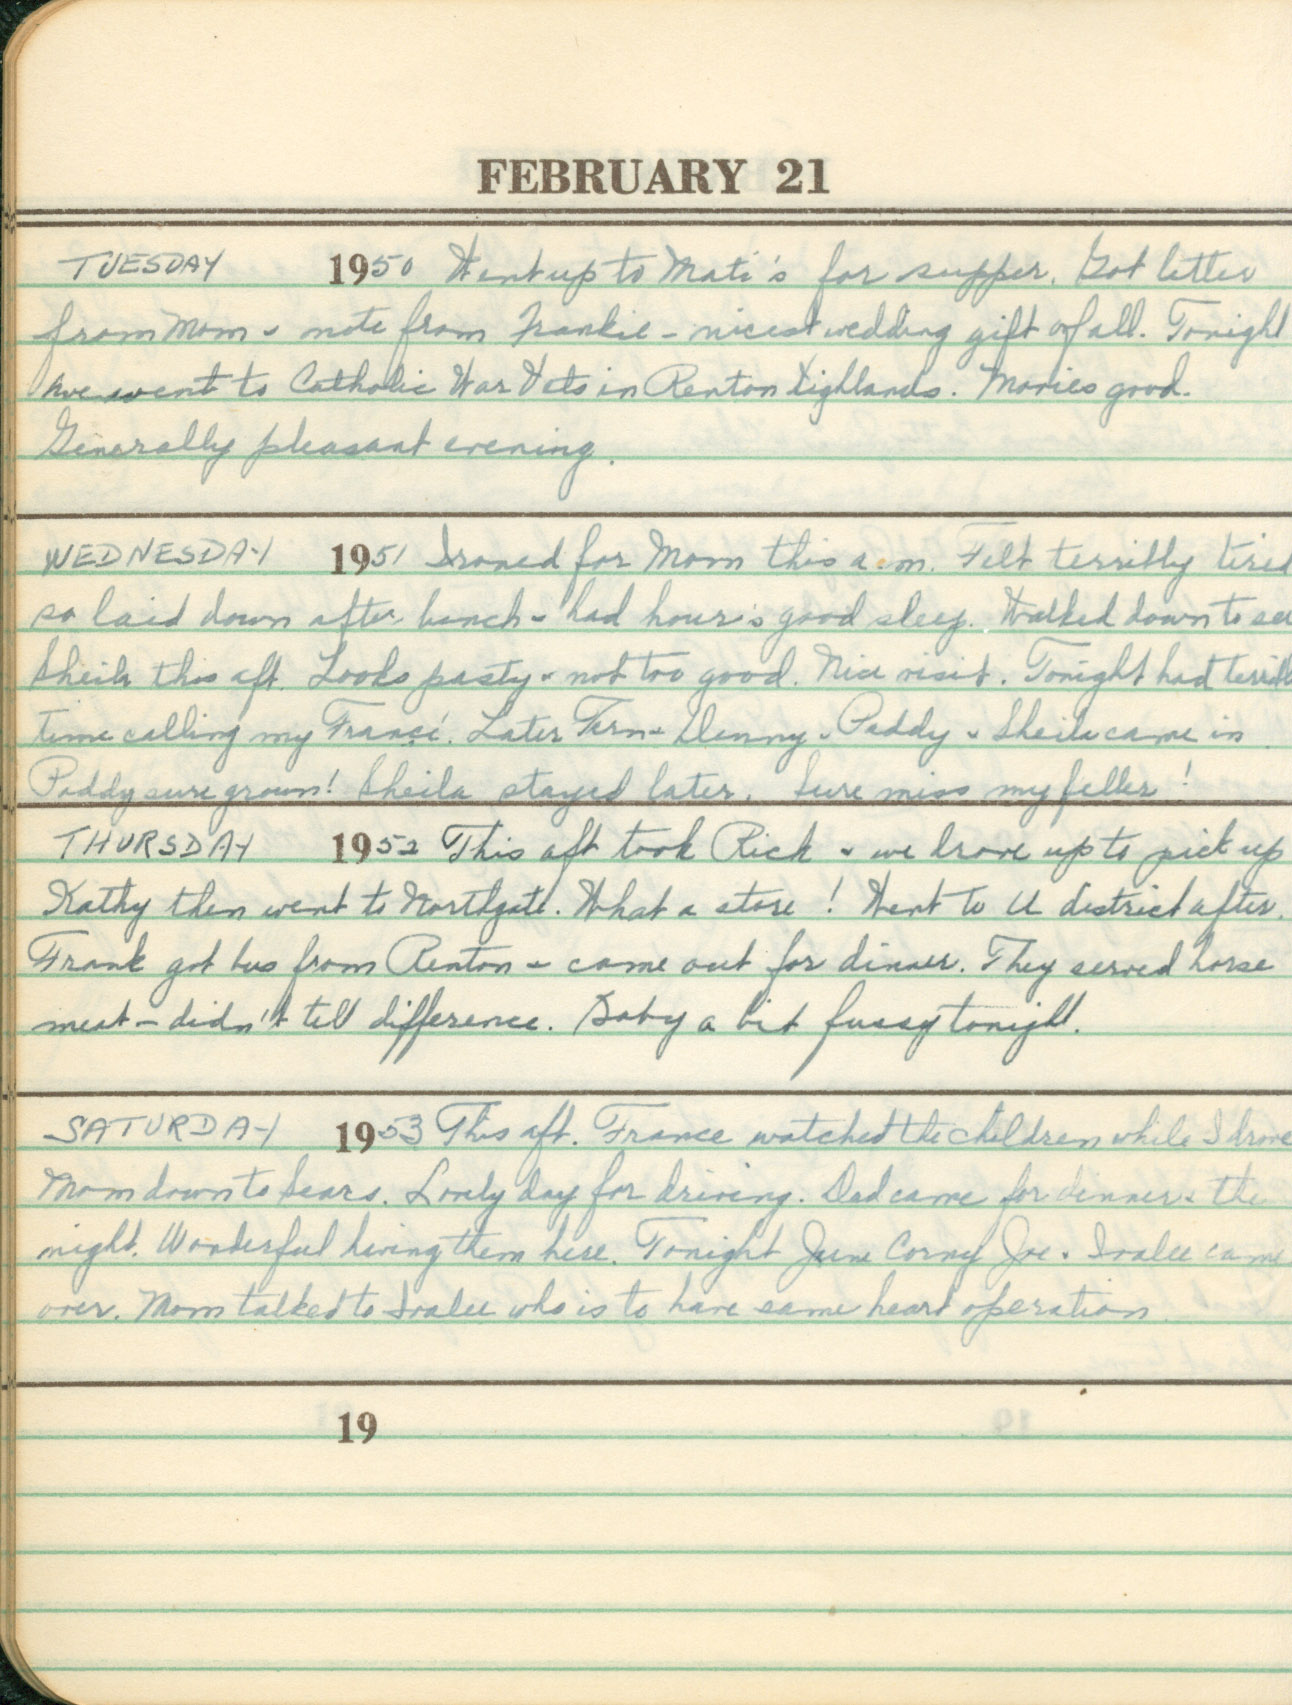 FEBRUARY 21
TUESDAY 1950 Went up to Mati's for supper. Got letter
from Mom & note from Frankie - nicest wedding gift of all. Tonight
we went to Catholic War Vets in Renton Highlands. Movies good.
Generally pleasant evening.
WEDNESDAY 1951 Ironed for Mom this a.m. Felt terribly tired
so laid down after lunch - had hour's good sleep. Walked down to see
Sheila this aft. Looks pasty - not too good. Nice visit. Tonight had
time calling my France. Later Fern & Denny & Paddy & Sheila came in
Paddy sure grown! Sheila stayed later. Sure miss my feller!
THURSDAY 1952 This aft took Rick & we drove up to pick up
Kathy then went to Northgate. What a store! Went to U district after.
Frank got bus from Renton & came out for dinner. They served horse
meat - didn't tell difference. Baby a bit fussy tonight.
SATURDAY 1953 This aft. France watched the children while I drove
Mom down to Sears. Lovely day for driving. Dad came for dinner & the
night. Wonderful having them here. Tonight June Corny Joe & Ivalee came
over. Mom talked to Ivalee who is to have same heart operation
19